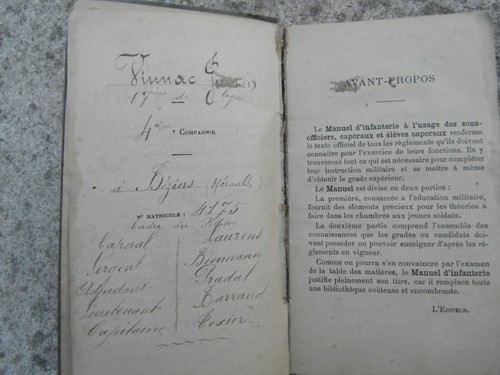 Vimnac
17ème de Ligne
4ème COMPAGNIE
à Béziers (Hérault)
N° MATRICULE : 4175
Cadre du
Caporal Laurens
Sergent Biermann
Adjudant Pradal
Lieutenant Barraud
Capitaine Texier
AVANT-PROPOS
Le Manuel d'infanterie à l'usage des sous-
officiers, caporaux et élèves caporaux renferme
le texte officiel de tous les règlements qu'ils doivent
connaître pour l'exercice de leurs fonctions. Ils y
trouveront tout ce qui est nécessaire pour compléter
leur instruction militaire et se mettre à même
d'obtenir le grade supérieur.
Le Manuel est divisé en deux parties :
La première, consacrée à l'éducation militaire,
fournit des éléments précieux pour les théories à
faire dans les chambres aux jeunes soldats.
La deuxième partie comprend l'ensemble des
connaissances que les gradés ou candidats doi-
vent posséder ou pouvoir enseigner d'après les
règlements en vigueur.
Comme on pourra s'en convaincre par l'examen
de la table des matières, le Manuel d'infanterie
justifie pleinement son titre, car il remplace toute
une bibliothèque coûteuse et encombrante.
L'ÉDITEUR.